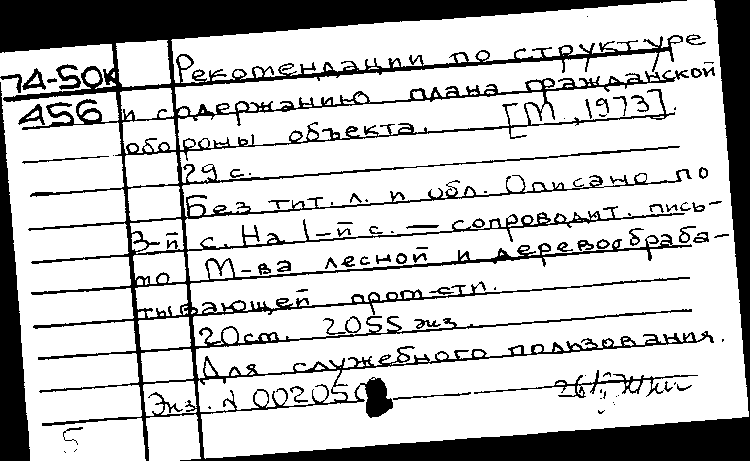 74-50к Рекомендации по структуре
456 и содержанию плана гражданской
обороны объекта. [М, 1973].
29 с.
Без тит. л. и обл. Описано по
3-й с. На 1-й с. — сопроводит. пись-
мо М-ва лесной и деревообраба-
тывающей пром-сти.
20 см. 2055 экз.
Для служебного пользования.
Экз. N 002050
5